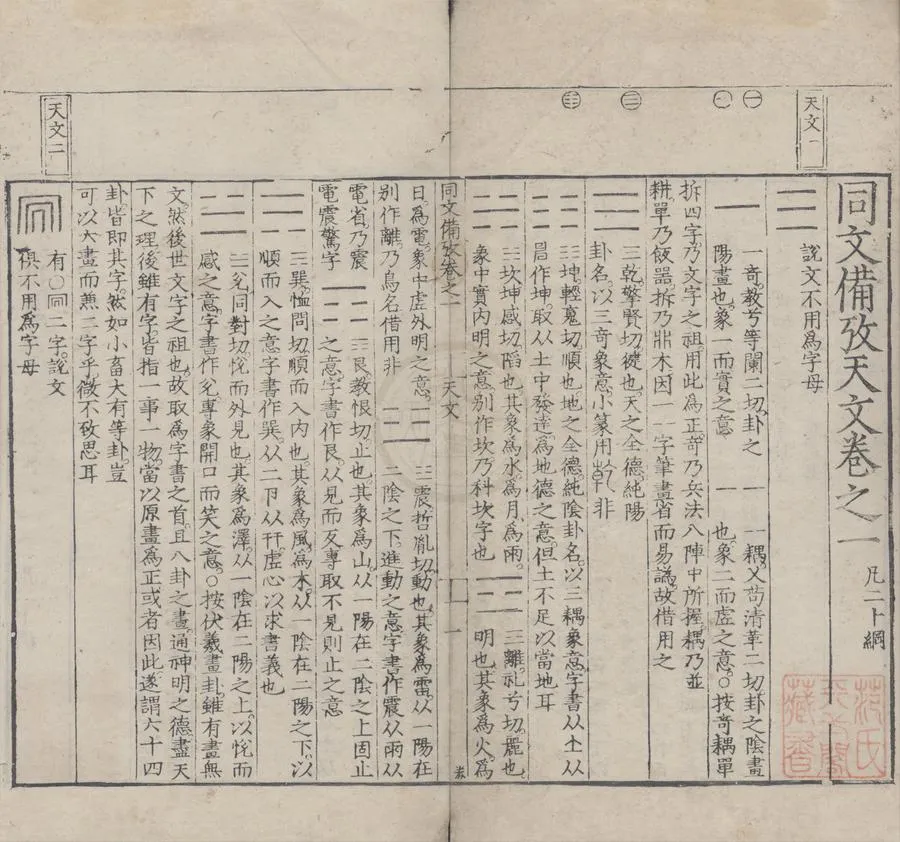 天文一
同文備攷天文卷之一 凡二十綱
三 說文不用爲字母
一 奇敎兮等闌二切卦之
陽畫也象一而實之意
耦乂茍清葦二切卦之陰畫
也象二而虛之意○按奇耦單
拆四字乃文字之祖用此爲正奇乃兵法八陣中所握耦乃並
耕單乃飯器拆乃
木因一一字筆畫省而易譌故借用之
☰ 三乾擎賢切健也天之全德純陽
卦名以三奇象意小篆用乾非
☷ 坤輕
切順也地之全德純陰卦名以三耦象意字書从土从
作坤取从土中發達爲地德之意但土不足以當地耳
☵ 坎坤感切陷也其象爲水爲月爲雨
象中實內明之意別作坎乃科坎字也
☲ 離
兮切麗也
明也其象爲火爲
同文備攷卷之一 天文 一
日爲電象中虛外明之意
別作離乃鳥名借用非
☳ 震哲胤切動也其象爲雷从一陽在
二陰之下進動之意字書作震从雨从
電省乃震
電震驚字
☶ 艮敎恨切止也其象爲山从一陽在二陰之上固止
之意字書作艮从見而反專取不見則止之意
☴ 巽
問切順而入內也其象爲風爲木从一陰在二陽之下以
順而入之意字書作巽从二
从
虛心以求書義也
☱ 兊同對切悅而外見也其象爲澤从一陰在二陽之上以悅而
感之意字書作兊專象開口而笑之意○按伏羲畫卦雖有畫無
文然後世文字之祖也故取爲字書之首且八卦之畫通神明之德盡天
下之理後雖有字皆指一事一物當以原畫爲正或者因此遂謂六十四
卦皆即其字然如小畜大有等卦豈
可以六畫而兼二字乎微不致思耳
有○
二字說文
俱不用爲字母
天文二